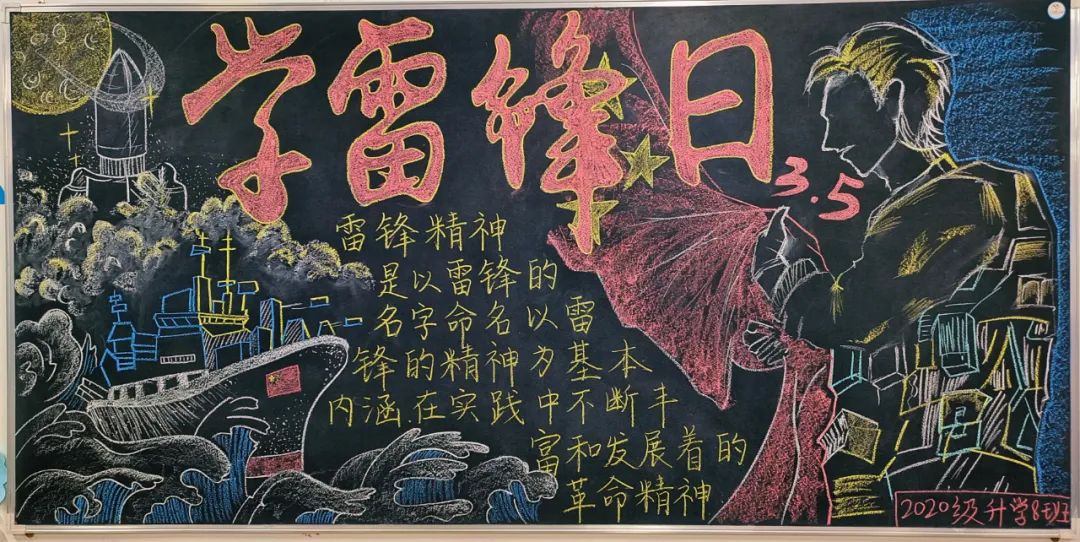 学雷锋日
3.5
雷锋精神
是以雷锋的
名字命名以雷
锋的精神为基本
内涵在实践中不断丰
富和发展着的
革命精神
2020级升学8班